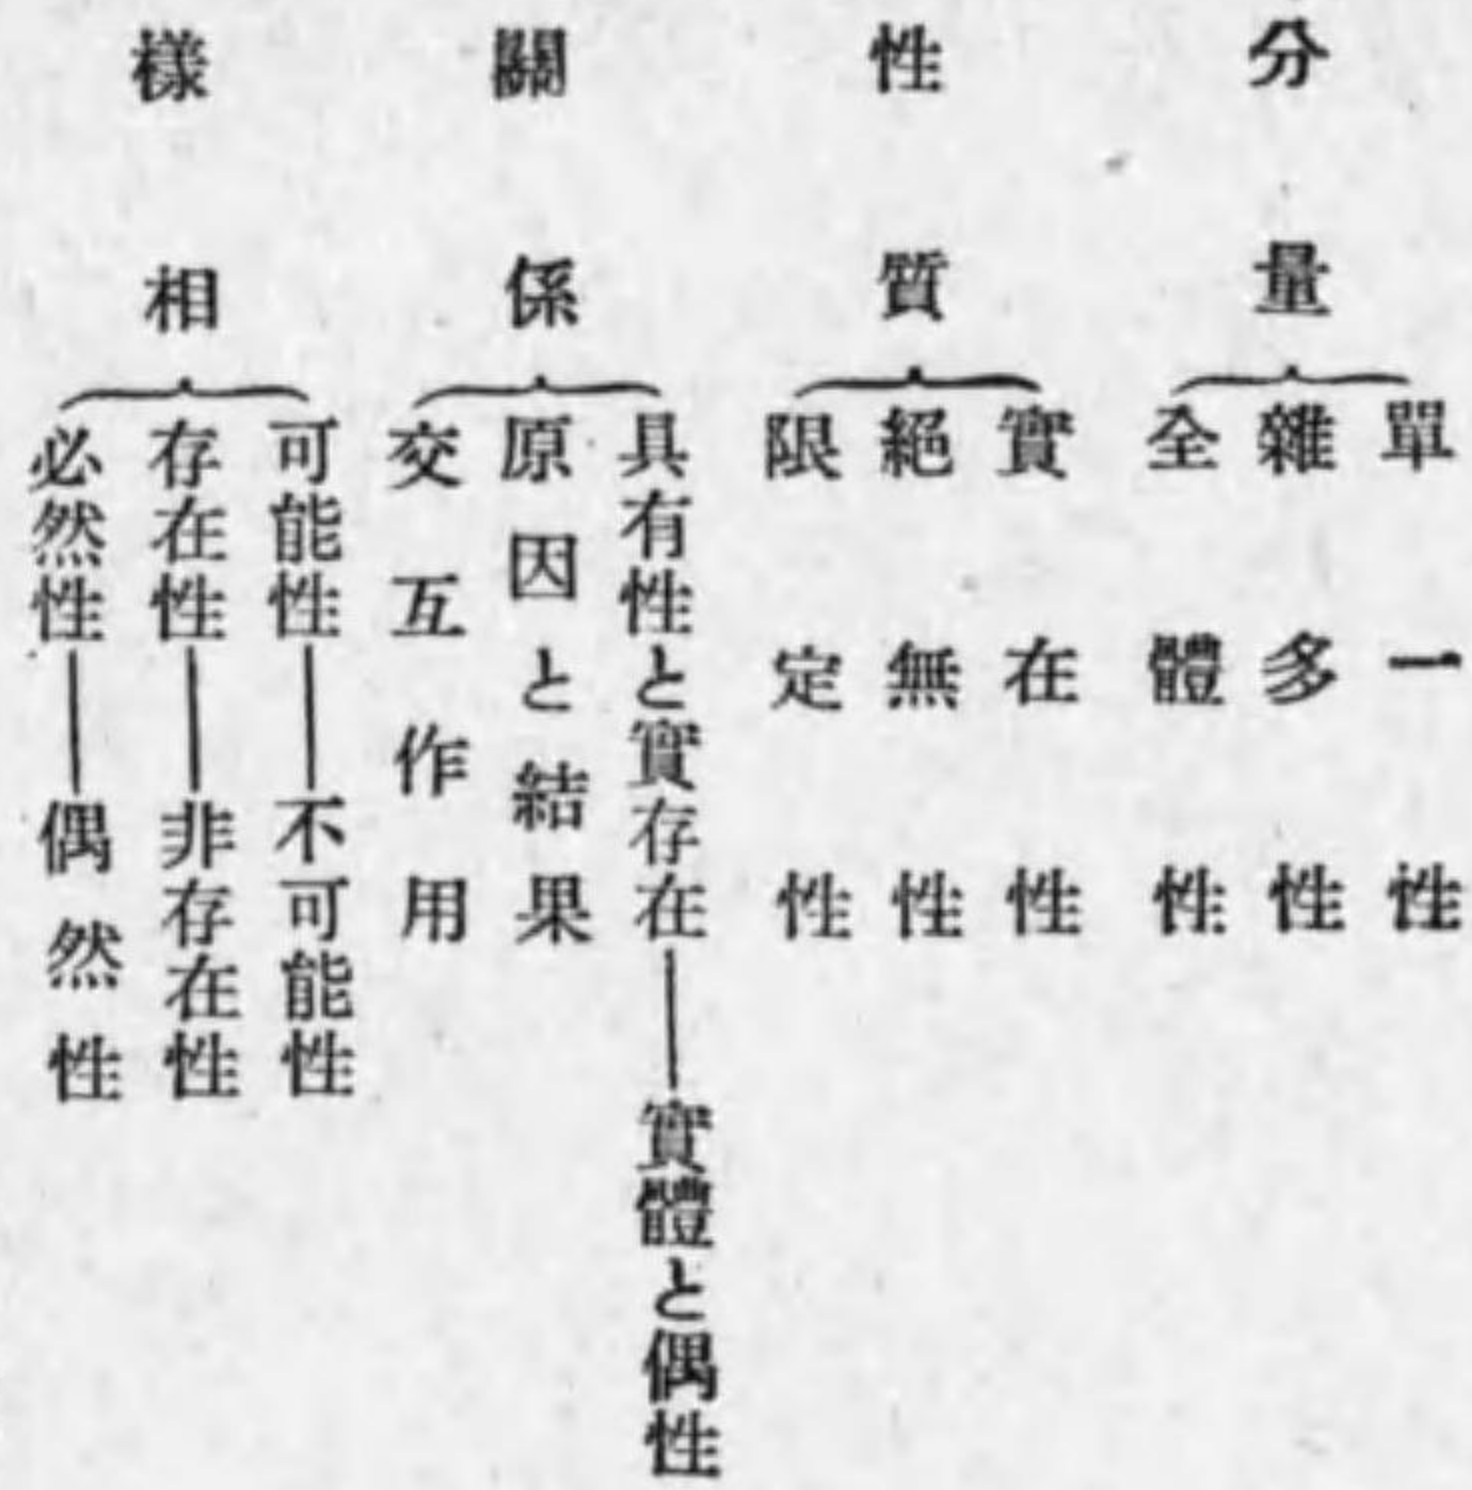 分量
單一性
雜多性
全體性
性質
實在性
絕無性
限定性
關係
具有性と實存在——實體と偶性
原因と結果
交互作用
樣相
可能性——不可能性
存在性——非存在性
必然性——偶然性